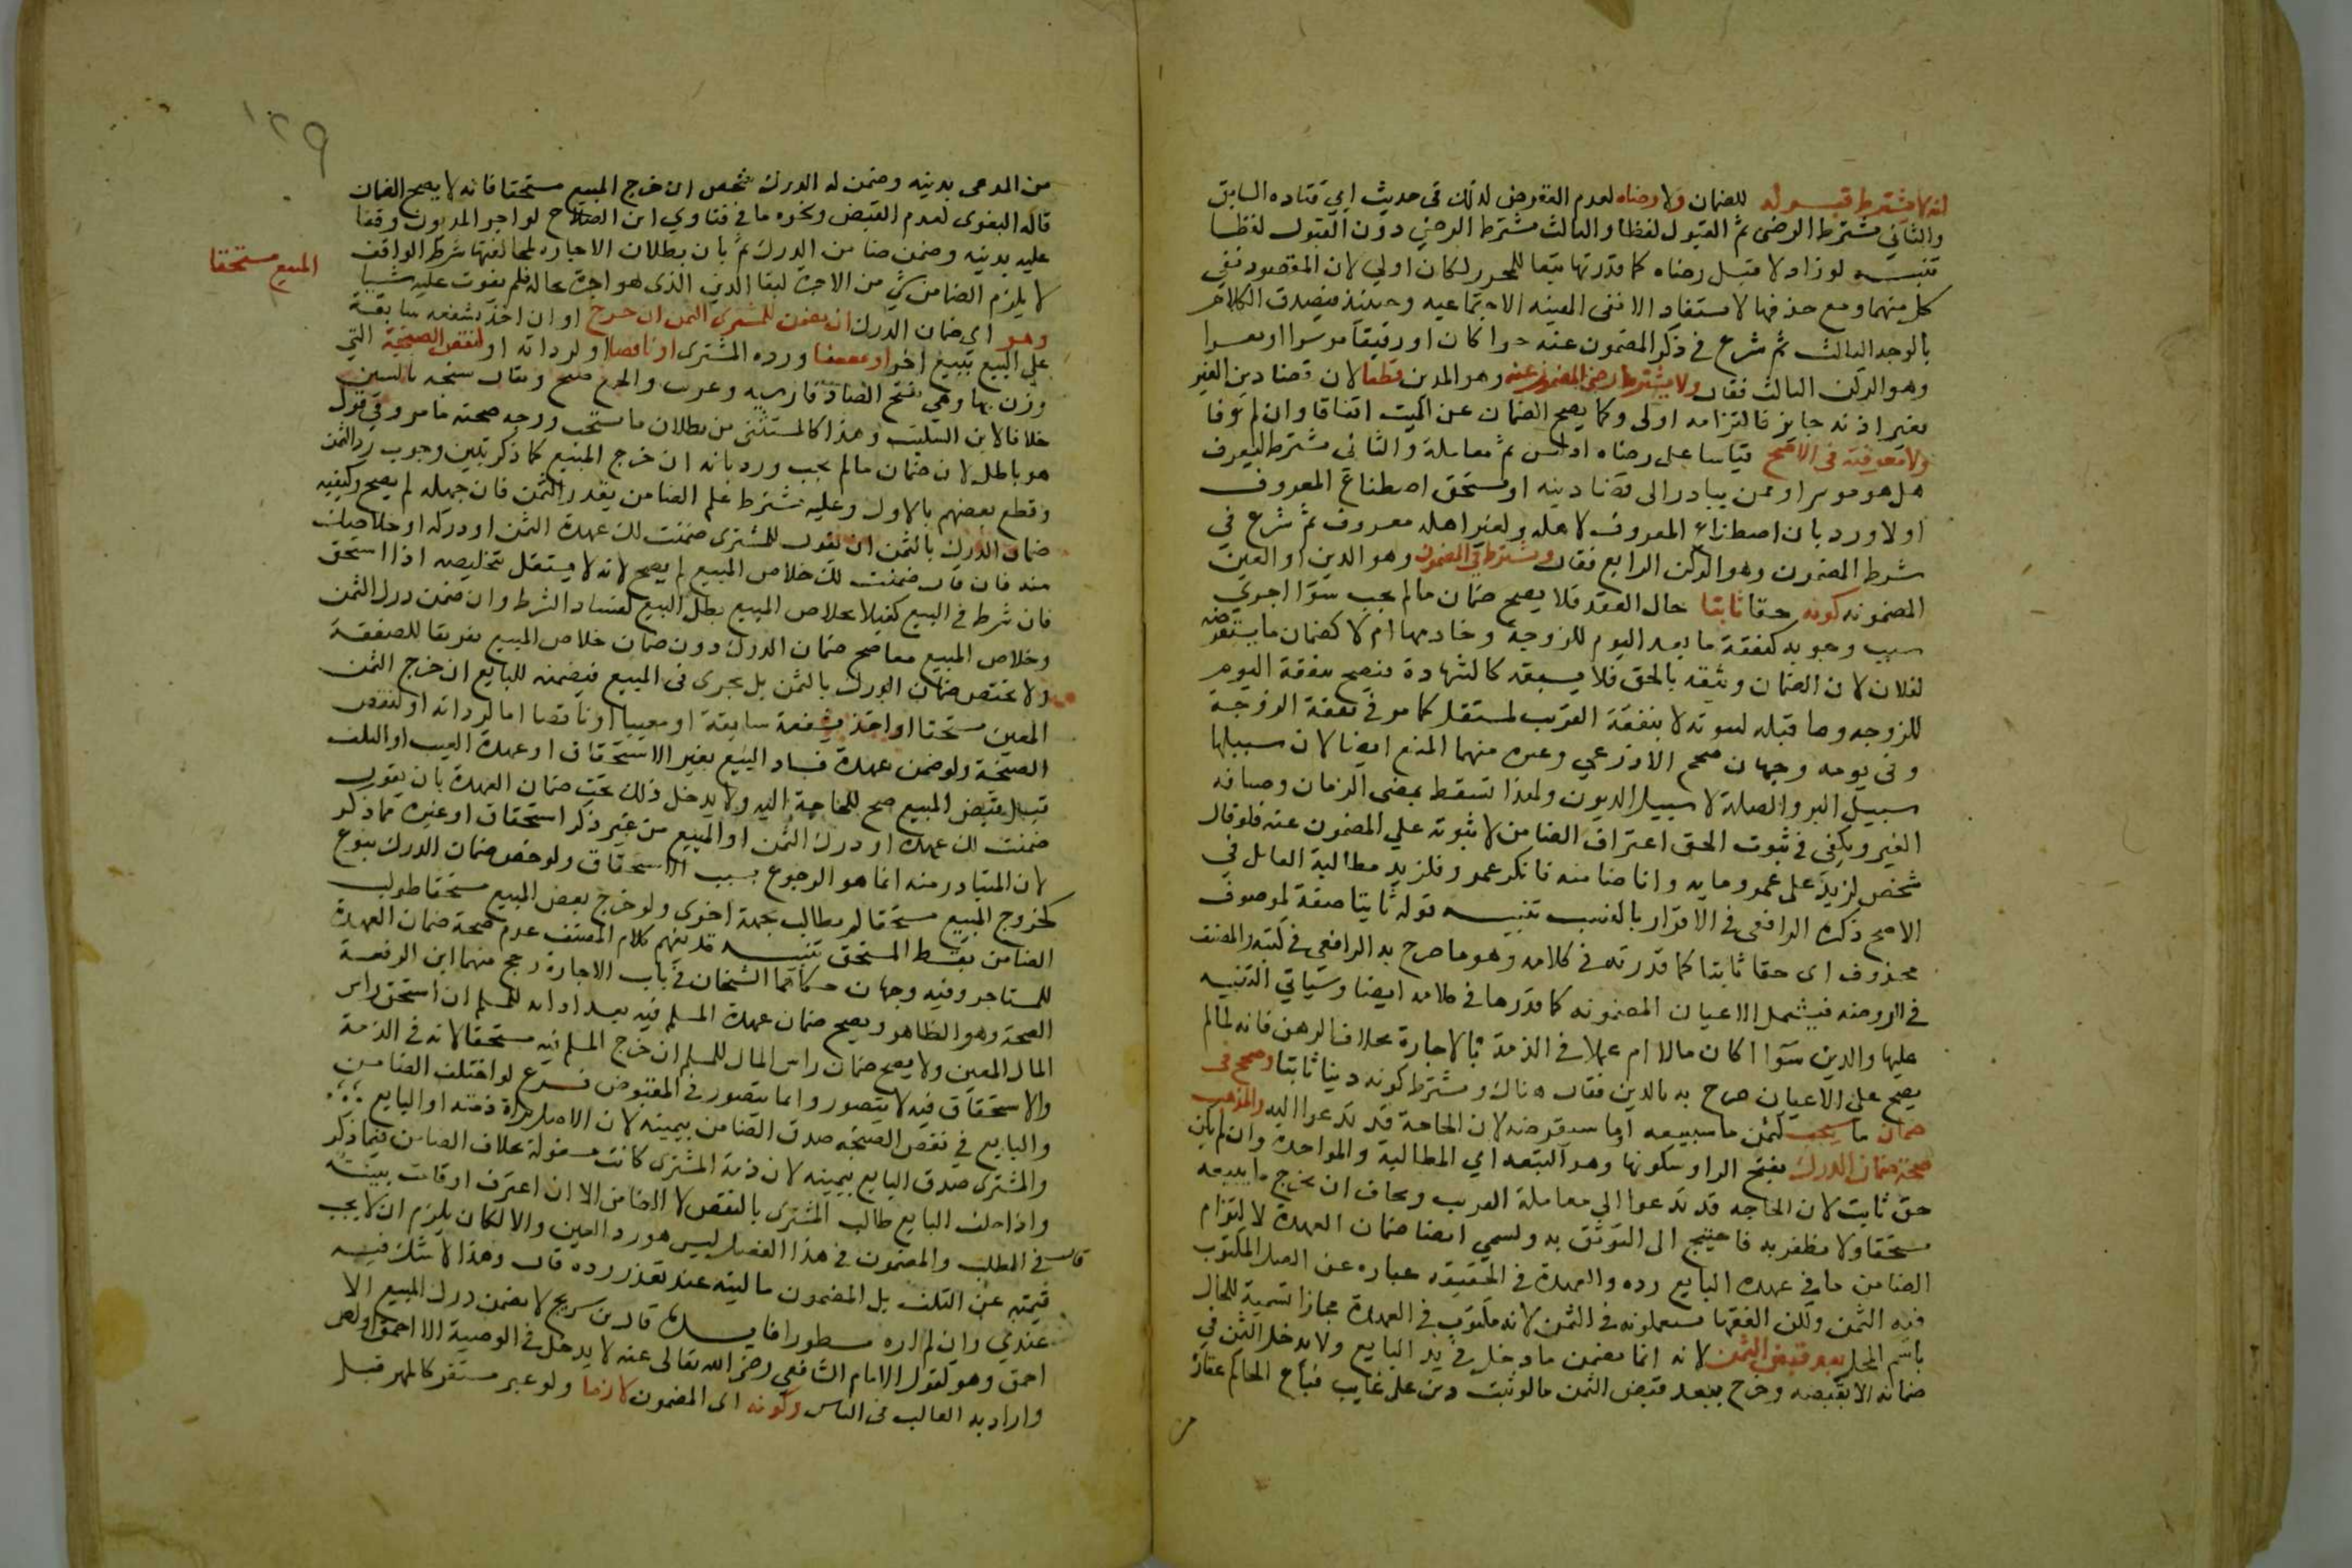 انه لا يشترط قبوله للضمان ولا رضاه لعدم التعرض لذلك في حديث ابي قتاده السابق
والثاني يشترط الرضى ثم القبول لفظا والثالث يشترط الرضى دون القبول لفظا
تنبيه لو زاد لا قبل رضاه كما قدرتها تبعا للمحرر لكان اولى لان المقصود نفي
كل منهما ومع حذفها لا يستفاد الا نفي المعيه الاجتماعيه وحينئذ فيصدق الكلام
بالوجه الثالث ثم شرع في ذكر المضمون عنه حرا كان او رقيقا موسرا او معسرا
وهو الركن الثالث فقال ولا يشترط رضى المضمون عنه وهو المدين قطعا لان قضا دين الغير
بغير اذنه جايز فالتزامه اولى وكما يصح الضمان عن الميت اتفاقا وان لم يخلف وفا
ولا معرفته في الاصح قياسا على رضاه اذ ليس ثم معاملة والثاني يشترط ليعرف
هل هو موسر او ممن يبادر الى قضا دينه او يستحق اصطناع المعروف
اولا ورد بان اصطناع المعروف لاهله ولغير اهله معروف ثم شرع في
شرط المضمون وهو الركن الرابع فقال ويشترط في المضمون وهو الدين او العين
المضمونه كونه حقا ثابتا حال العقد فلا يصح ضمان مالم يجب سوا اجرى
سبب وجوبه كنفقة ما بعد اليوم للزوجة وخادمها ام لا كضمان ما سيقرضه
لفلان لان الضمان وثيقه بالحق فلا يسبقه كالشهادة فيصح بنفقة اليوم
للزوجه وما قبله لثبوته لا بنفقة القريب لمستقبل كما مر في نفقة الزوجة
وفي يومه وجهان صحح الاذرعي وغيره منهما المنع ايضا لان سبيلها
سبيل البر والصلة لا سبيل الديون ولهذا تسقط بمضي الزمان وضيافه
الغير ويكفي في ثبوت الحق اعتراف الضامن لا ثبوته على المضمون عنه فلو قال
شخص لزيد على عمرو مايه وانا ضامنه فانكر عمرو فلزيد مطالبة القايل في
الاصح ذكره الرافعي في الاقرار بالنسب تنبيه قوله ثابتا صفة لموصوف
محذوف اى حقا ثابتا كما قدرته في كلامه وهو ما صرح به الرافعي في كتبه والمصنف
في الروضه فيشمل الاعيان المضمونه كما قدرها في كلامه ايضا وسياتي التنبيه
عليها والدين سوا اكان مالا ام عملا في الذمة بالاجارة بخلاف الرهن فانه لما لم
يصح على الاعيان صرح به بالدين فقال هناك ويشترط كونه دينا ثابتا وصحح في
ضمان ما سيجب كثمن ما سيبيعه او ما سيقرضه لان الحاجة قد تدعوا اليه والمذهب
صحة ضمان الدرك بفتح الرا وسكونها وهو التبعه اي المطالبة والمواخذه وان لم يكن
حق ثابت لان الحاجه قد تدعوا الى معاملة الغريب ويخاف ان يخرج ما يبيعه
مستحقا ولا يظفر به فاحتيج الى التوثق به ويسمى ايضا ضمان العهدة لالتزام
الضامن ما في عهدة البايع رده والعهدة في الحقيقه عباره عن الصك المكتوب
فيه الثمن ولكن الفقها يستعملونه في الثمن لانه مكتوب في العهدة مجازا تسمية للحال
باسم المحل بعد قبض الثمن لانه انما يضمن ما دخل في يد البايع ولا يدخل الثمن في
ضمانه الا بقبضه وخرج ببعد قبض الثمن ما لو ثبت دين على غايب فباع الحاكم عقاره
من
١٢٩
من المدعى بدينه وضمن له الدرك شخص ان خرج المبيع مستحقا فانه لا يصح الضمان
قاله البغوى لعدم القبض ونحوه ما في فتاوي ابن الصلاح لو اجر المديون وقفا
عليه بدينه وضمن ضامن الدرك ثم بان بطلان الاجاره لمخالفتها شرط الواقف
لا يلزم الضامن شي من الاجرة لبقا الدين الذى هو اجرة بحاله فلم يفوت عليه شيا
وهو اي ضمان الدرك ان يضمن للمشترى الثمن ان خرج او ان اخذ بشفعه سابقة
المبيع مستحقا
على البيع ببيع اخر او معيبا ورده المشترى او ناقصا او لرداته او لنقص الصنجة التي
وزن بها وهي بفتح الصاد فارسيه وعربت والجمع صنج ويقال سنجه بالسين
خلافا لابن السكيت وهذا كالمستثنى من بطلان ما سيجب ووجه صحته ما مر وفي قول
هو باطل لان ضمان مالم يجب ورد بانه ان خرج المبيع كما ذكر تبين وجوب رد الثمن
وقطع بعضهم بالاول وعليه يشترط علم الضامن بقدر الثمن فان جهله لم يصح وكيفيه
ضمان الدرك بالثمن ان يقول للمشترى ضمنت لك عهدة الثمن او دركه او خلاصك
منه فان قال ضمنت لك خلاص المبيع لم يصح لانه لا يستقل بتخليصه اذا استحق
فان شرط في البيع كفيلا بخلاص المبيع بطل البيع لفساد الشرط وان ضمن درك الثمن
وخلاص المبيع معا صح ضمان الدرك دون ضمان خلاص المبيع تفريقا للصفقة
ولا يختص ضمان الدرك بالثمن بل يجرى في المبيع فيضمنه للبايع ان خرج الثمن
المعين مستحقا او اخذ بشفعة سابقة او معيبا او ناقصا اما لرداته او لنقص
الصنجة ولو ضمن عهدة فساد البيع بغير الاستحقاق او عهدة العيب او التلف
قبل قبض المبيع صح للحاجة اليه ولا يدخل ذلك تحت ضمان العهدة بان يقول
ضمنت لك عهدة او درك الثمن او المبيع من غير ذكر استحقاق او غيره مما ذكر
لان المتبادر منه انما هو الرجوع بسبب الاستحقاق ولو خص ضمان الدرك بنوع
كخروج المبيع مستحقا لم يطالب بجهة اخرى ولو خرج بعض المبيع مستحقا طولب
الضامن بقسط المستحق تنبيه قد يفهم كلام المصنف عدم صحة ضمان العهدة
للمستاجر وفيه وجهان حكاهما الشيخان في باب الاجارة رجح منهما ابن الرفعة
الصحة وهو الظاهر ويصح ضمان عهدة المسلم فيه بعد ادائه للمسلم ان استحق راس
المال المعين ولا يصح ضمان راس المال للمسلم ان خرج المسلم فيه مستحقا لانه في الذمة
والاستحقاق فيه لا يتصور وانما يتصور في المقبوض فرع لو اختلف الضامن
والبايع في نقص الصنجه صدق الضامن بيمينه لان الاصل براة ذمته او البايع
والمشترى صدق البايع بيمينه لان ذمة المشترى كانت مشغولة بخلاف الضامن فيما ذكر
واذا حلف البايع طالب المشترى بالنقص لا الضامن الا ان اعترف او قامت بينة
قال في المطلب والمضمون في هذا الفصل ليس هو رد العين والا لكان يلزم ان لا يجب
قيمته عن التلف بل المضمون ماليته عند تعذر رده قال وهذا لا شك فيه
عندي وان لم اره مسطورا فايدة قال ابن سريج لا يضمن درك المبيع الا
احمق وهو كقول الامام الشافعي رضى الله تعالى عنه لا يدخل في الوصية الا احمق او لص
واراد به الغالب في الناس وكونه اى المضمون لازما ولو غير مستقر كالمهر قبل